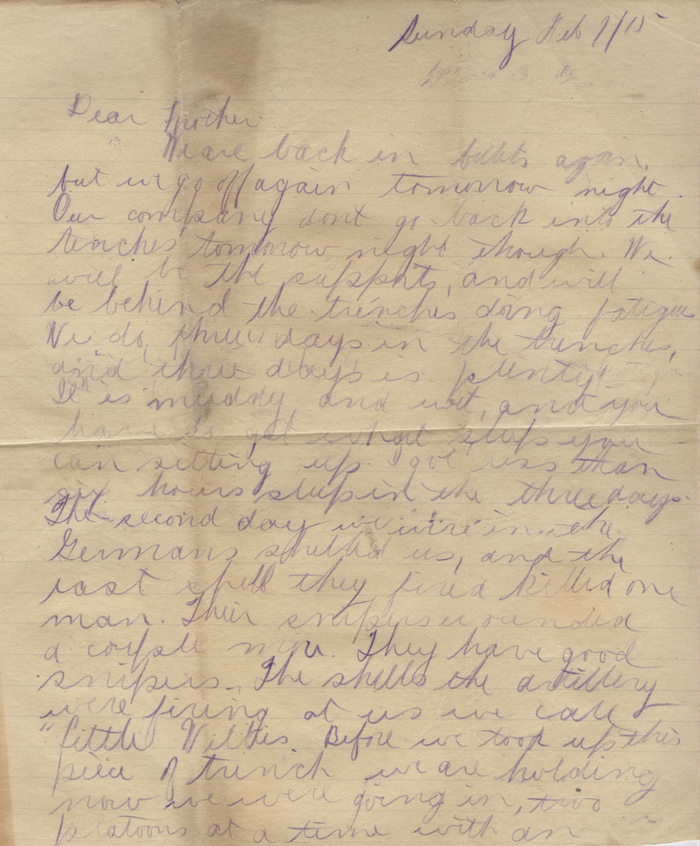 Sunday Feb 7/15
Dear Mother
We are back in billets again,
but we go off again tomorrow night.
Our company dont go back into the
trenches tomorrow night though. We
will be the supports, and will
be behind the trenches doing fatigue
We do three days in the trenches,
and three days is plenty
It is muddy and wet, and you
have to get what sleep you
can setting up. got less than
six hours sleep in the three days.
The second day we were in the
Germans shelled us, and the
last shell they fired killed one
man. Their snipers wounded
a couple more. They have good
snipers. The shells the artillery
were firing at us we call
"little Willies. Before we took up this
piece of trench we are holding
now we were going in, two
platoons at a time with an